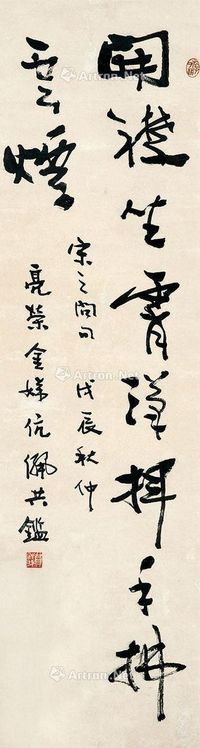 開襟坐霄漢揮手拂
雲煙
宋之問句 戊辰秋仲
亮榮金娣伉儷共鑑
Artron.Net
Artron.Net
Artron.Net